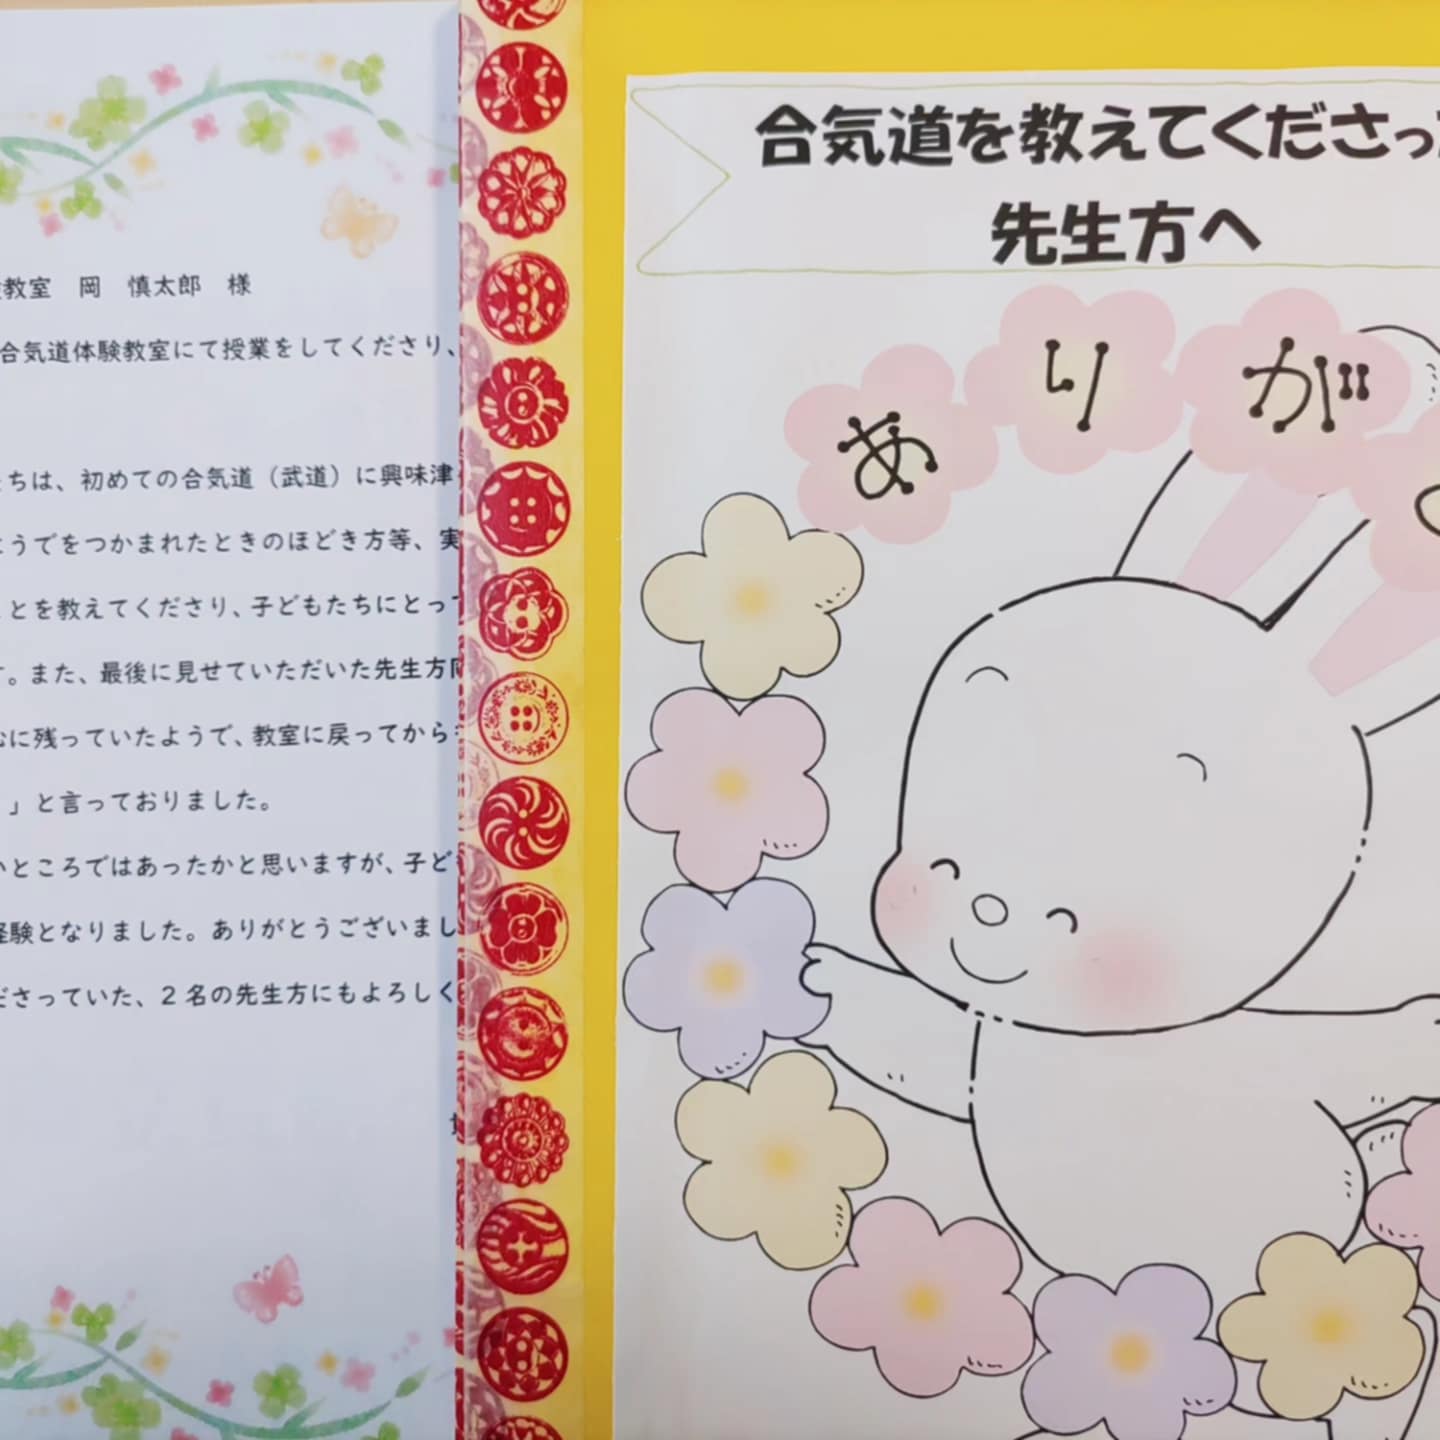 教室 岡 慎太郎 様
合気道体験教室にて授業をしてくださり、
ちは、初めての合気道（武道）に興味津
うでをつかまれたときのほどき方等、実
とを教えてくださり、子どもたちにとって
。また、最後に見せていただいた先生方
に残っていたようで、教室に戻ってから
」と言っておりました。
ところではあったかと思いますが、子ど
験となりました。ありがとうございまし
ださっていた、２名の先生方にもよろしく
合気道を教えてくださっ
先生方へ
ありが